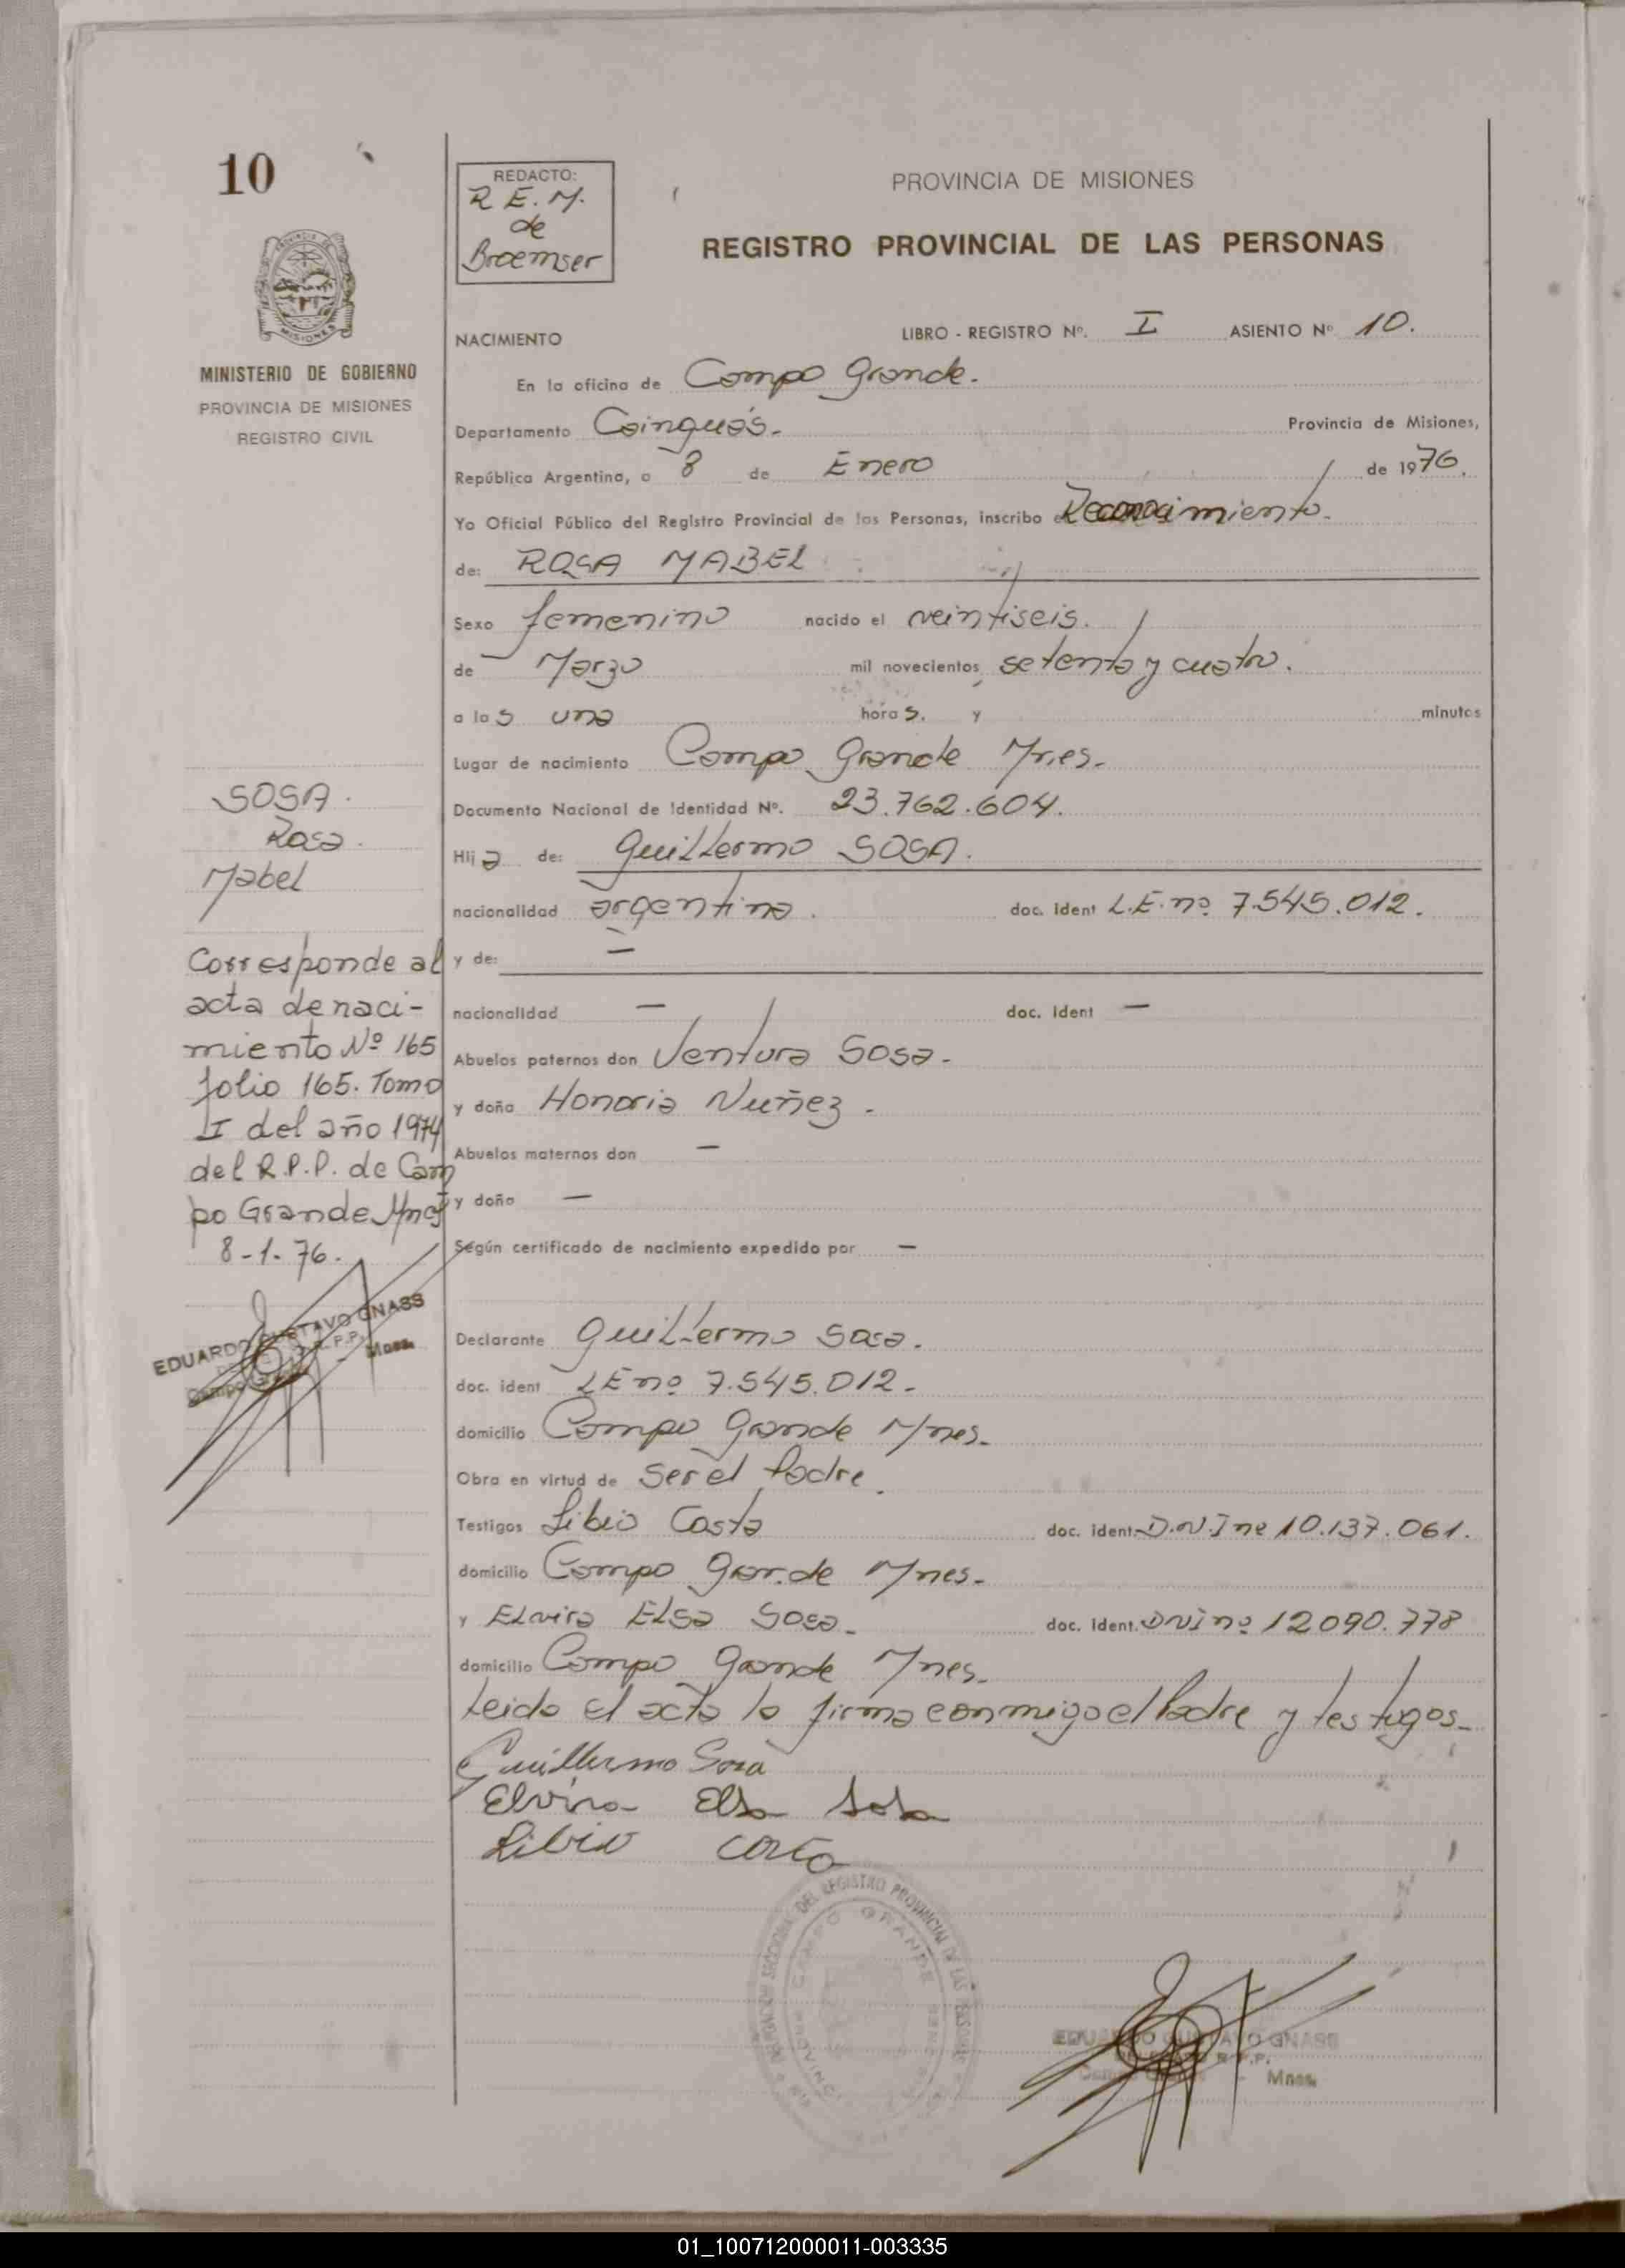 10
REDACTO:
R E. M.
de
Broemser
PROVINCIA DE MISIONES
REGISTRO PROVINCIAL DE LAS PERSONAS
MINISTERIO DE GOBIERNO
PROVINCIA DE MISIONES
REGISTRO CIVIL
NACIMIENTO LIBRO - REGISTRO Nº. I ASIENTO Nº 10.
En la oficina de Campo Grande.
Departamento Cainguás. Provincia de Misiones,
República Argentina, a 8 de Enero de 1976.
Yo Oficial Público del Registro Provincial de las Personas, inscribo el Reconocimiento.
de: ROSA MABEL
Sexo femenino nacido el veintiseis.
de Marzo mil novecientos setenta y cuatro.
a las una horas. y minutos
Lugar de nacimiento Campo Grande Mnes.
Documento Nacional de Identidad Nº. 23.762.604.
Hija de: Guillermo SOSA.
nacionalidad argentina. doc. ident L.E. nº 7.545.012.
y de: —
nacionalidad — doc. ident —
Abuelos paternos don Ventura Sosa.
y doña Honoria Nuñez.
Abuelos maternos don —
y doña —
Según certificado de nacimiento expedido por —
Declarante Guillermo Sosa.
doc. ident LE nº 7.545.012.
domicilio Campo Grande Mnes.
Obra en virtud de ser el Padre.
Testigos Libio Costa doc. ident. D.N.I nº 10.137.061.
domicilio Campo Grande Mnes.
y Elvira Elsa Sosa. doc. ident. DNI nº 12090.778
domicilio Campo Grande Mnes.
Leida el acta la firma conmigo el Padre y testigos.
Guillermo Sosa
Elvira Elsa Sosa
Libio Costa
SOSA.
Rosa
Mabel
Corresponde al
acta de naci-
miento Nº 165
folio 165. Tomo
II del año 1974
del R.P.P. de Cam
po Grande Mnes
8-1-76.
EDUARDO GUSTAVO GNASS
R.P.P.
Campo Grande - Mnes.
DEL REGISTRO PROVINCIAL DE LAS PERSONAS
CAMPO GRANDE
EDUARDO GUSTAVO GNASS
DELEGADO R.P.P.
Campo Grande - Mnes.
01_100712000011-003335